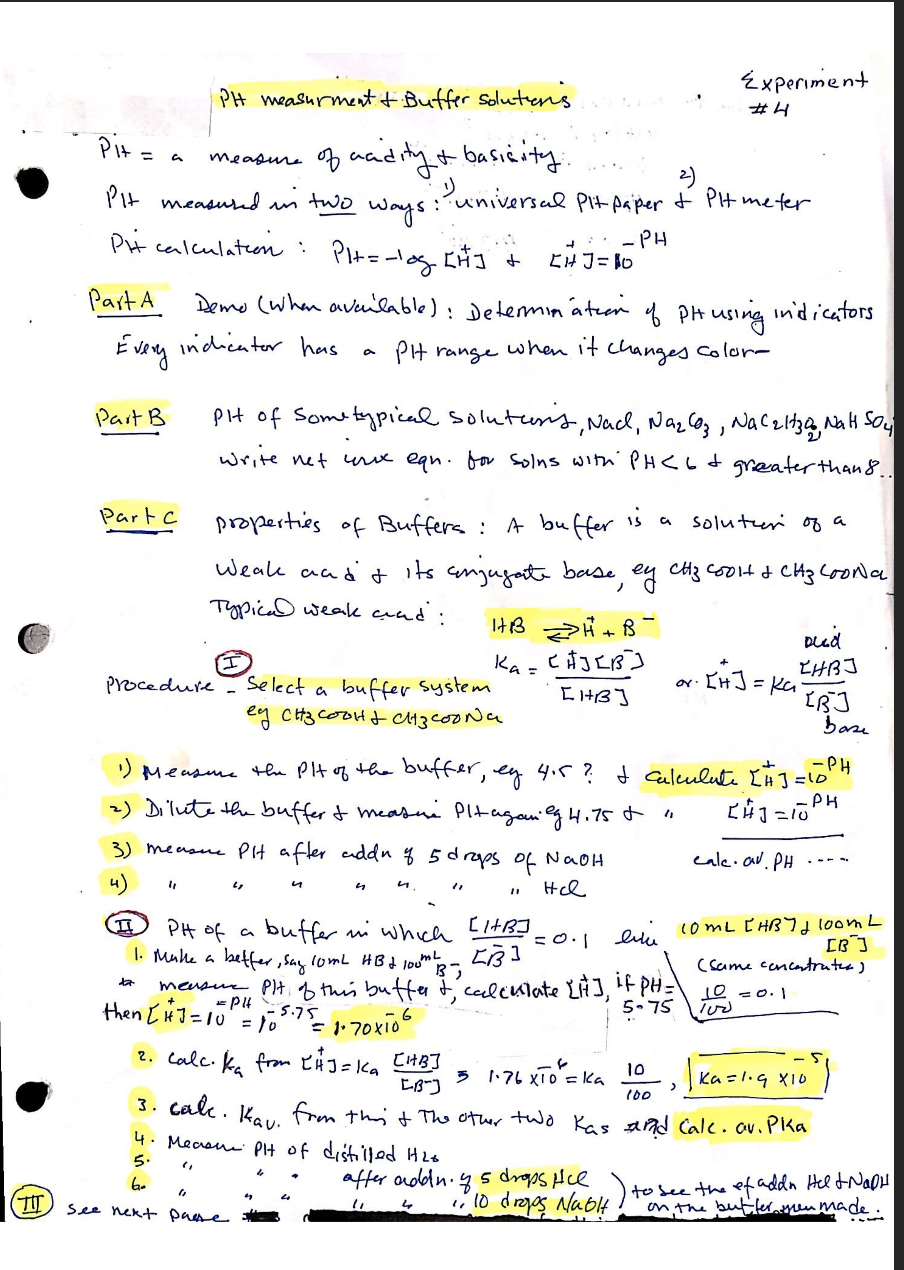 Experiment
#4
PH measurment & Buffer solutions
PH = a measure of acidity & basicity.
PH measured in two ways : 1) universal PH paper & 2) PH meter
PH calculation : PH = -log [H⁺] & [H⁺] = 10^-PH
Part A Demo (when available) : Determination of PH using indicators
Every indicator has a PH range when it changes color-
Part B PH of some typical solutions, NaCl, Na2CO3, NaC2H3O2, NaHSO4
Write net ionic eqn. for solns with PH < 6 & greater than 8..
Part C properties of Buffers : A buffer is a solution of a
weak acid & its conjugate base, eg CH3COOH & CH3COONa
Typical weak acid : HB ⇌ H⁺ + B⁻
I Ka = [H⁺][B⁻] / [HB] or [H⁺] = Ka [HB] acid / [B⁻] base
Procedure - Select a buffer system
eg CH3COOH & CH3COONa
1) Measure the PH of the buffer, eg 4.5 ? & Calculate [H⁺] = 10^-PH
2) Dilute the buffer & measure PH again eg 4.75 & " [H⁺] = 10^-PH
3) measure PH after addn of 5 drops of NaOH calc. av. PH ----
4) " " " " " " " HCl
II PH of a buffer in which [HB] / [B⁻] = 0.1 like 10 mL [HB] & 100 mL [B⁻]
1. Make a buffer, say 10mL HB & 100mL B⁻, (same concentrates)
measure PH of this buffer &, calculate [H⁺], if PH = 5.75 10/100 = 0.1
then [H⁺] = 10^-PH = 10^-5.75 = 1.70 x 10^-6
2. Calc. Ka from [H⁺] = Ka [HB] / [B⁻] , 1.76 x 10^-6 = Ka 10/100 , Ka = 1.9 x 10^-5
3. calc. Kav. from this & The other two Kas and Calc. av. PKa
4. Measure PH of distilled H2o
5. " " " after addn. of 5 drops HCl
6. " " " " " " 10 drops NaOH ) to see the ef addn HCl & NaOH
on the buffer you made.
III See next page